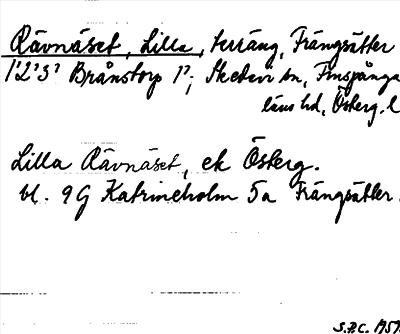 Rävnäset, Lilla, terräng, Frängsätter
1²2³3² Brånstorp 1²; Skedevi sn, Finspånga
läns hd, Österg. l
Lilla Rävnäset, ek Österg.
bl. 9G Katrineholm 5a Frängsätter.
S.P.C. 1951